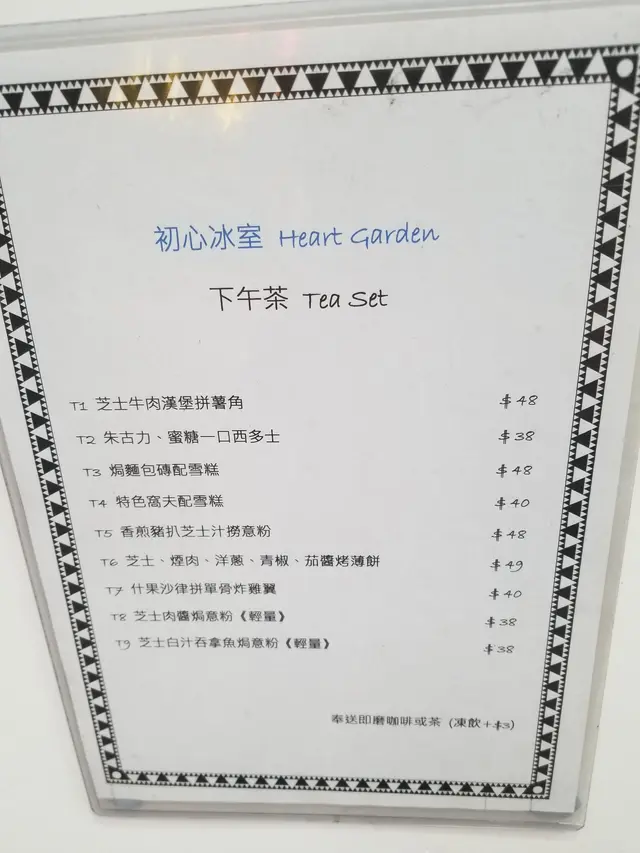 初心冰室 Heart Garden
下午茶 Tea Set
T1 芝士牛肉漢堡拼薯角 $48
T2 朱古力、蜜糖一口西多士 $38
T3 焗麵包磚配雪糕 $48
T4 特色窩夫配雪糕 $40
T5 香煎豬扒芝士汁撈意粉 $48
T6 芝士、煙肉、洋蔥、青椒、茄醬烤薄餅 $49
T7 什果沙律拼單骨炸雞翼 $40
T8 芝士肉醬焗意粉《輕量》 $38
T9 芝士白汁吞拿魚焗意粉《輕量》 $38
奉送即磨咖啡或茶 (凍飲+$3)